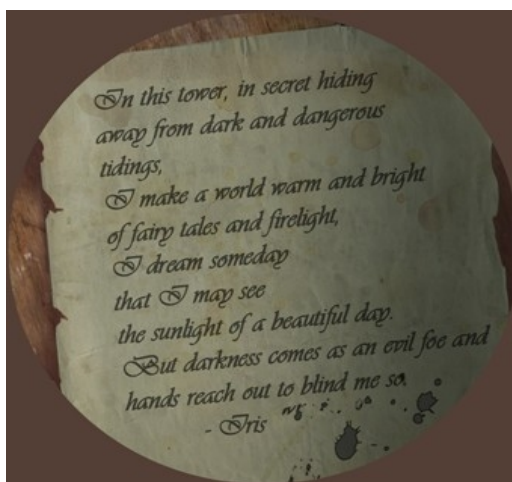 In this tower, in secret hiding
away from dark and dangerous
tidings,
I make a world warm and bright
of fairy tales and firelight,
I dream someday
that I may see
the sunlight of a beautiful day.
But darkness comes as an evil foe and
hands reach out to blind me so.
- Iris